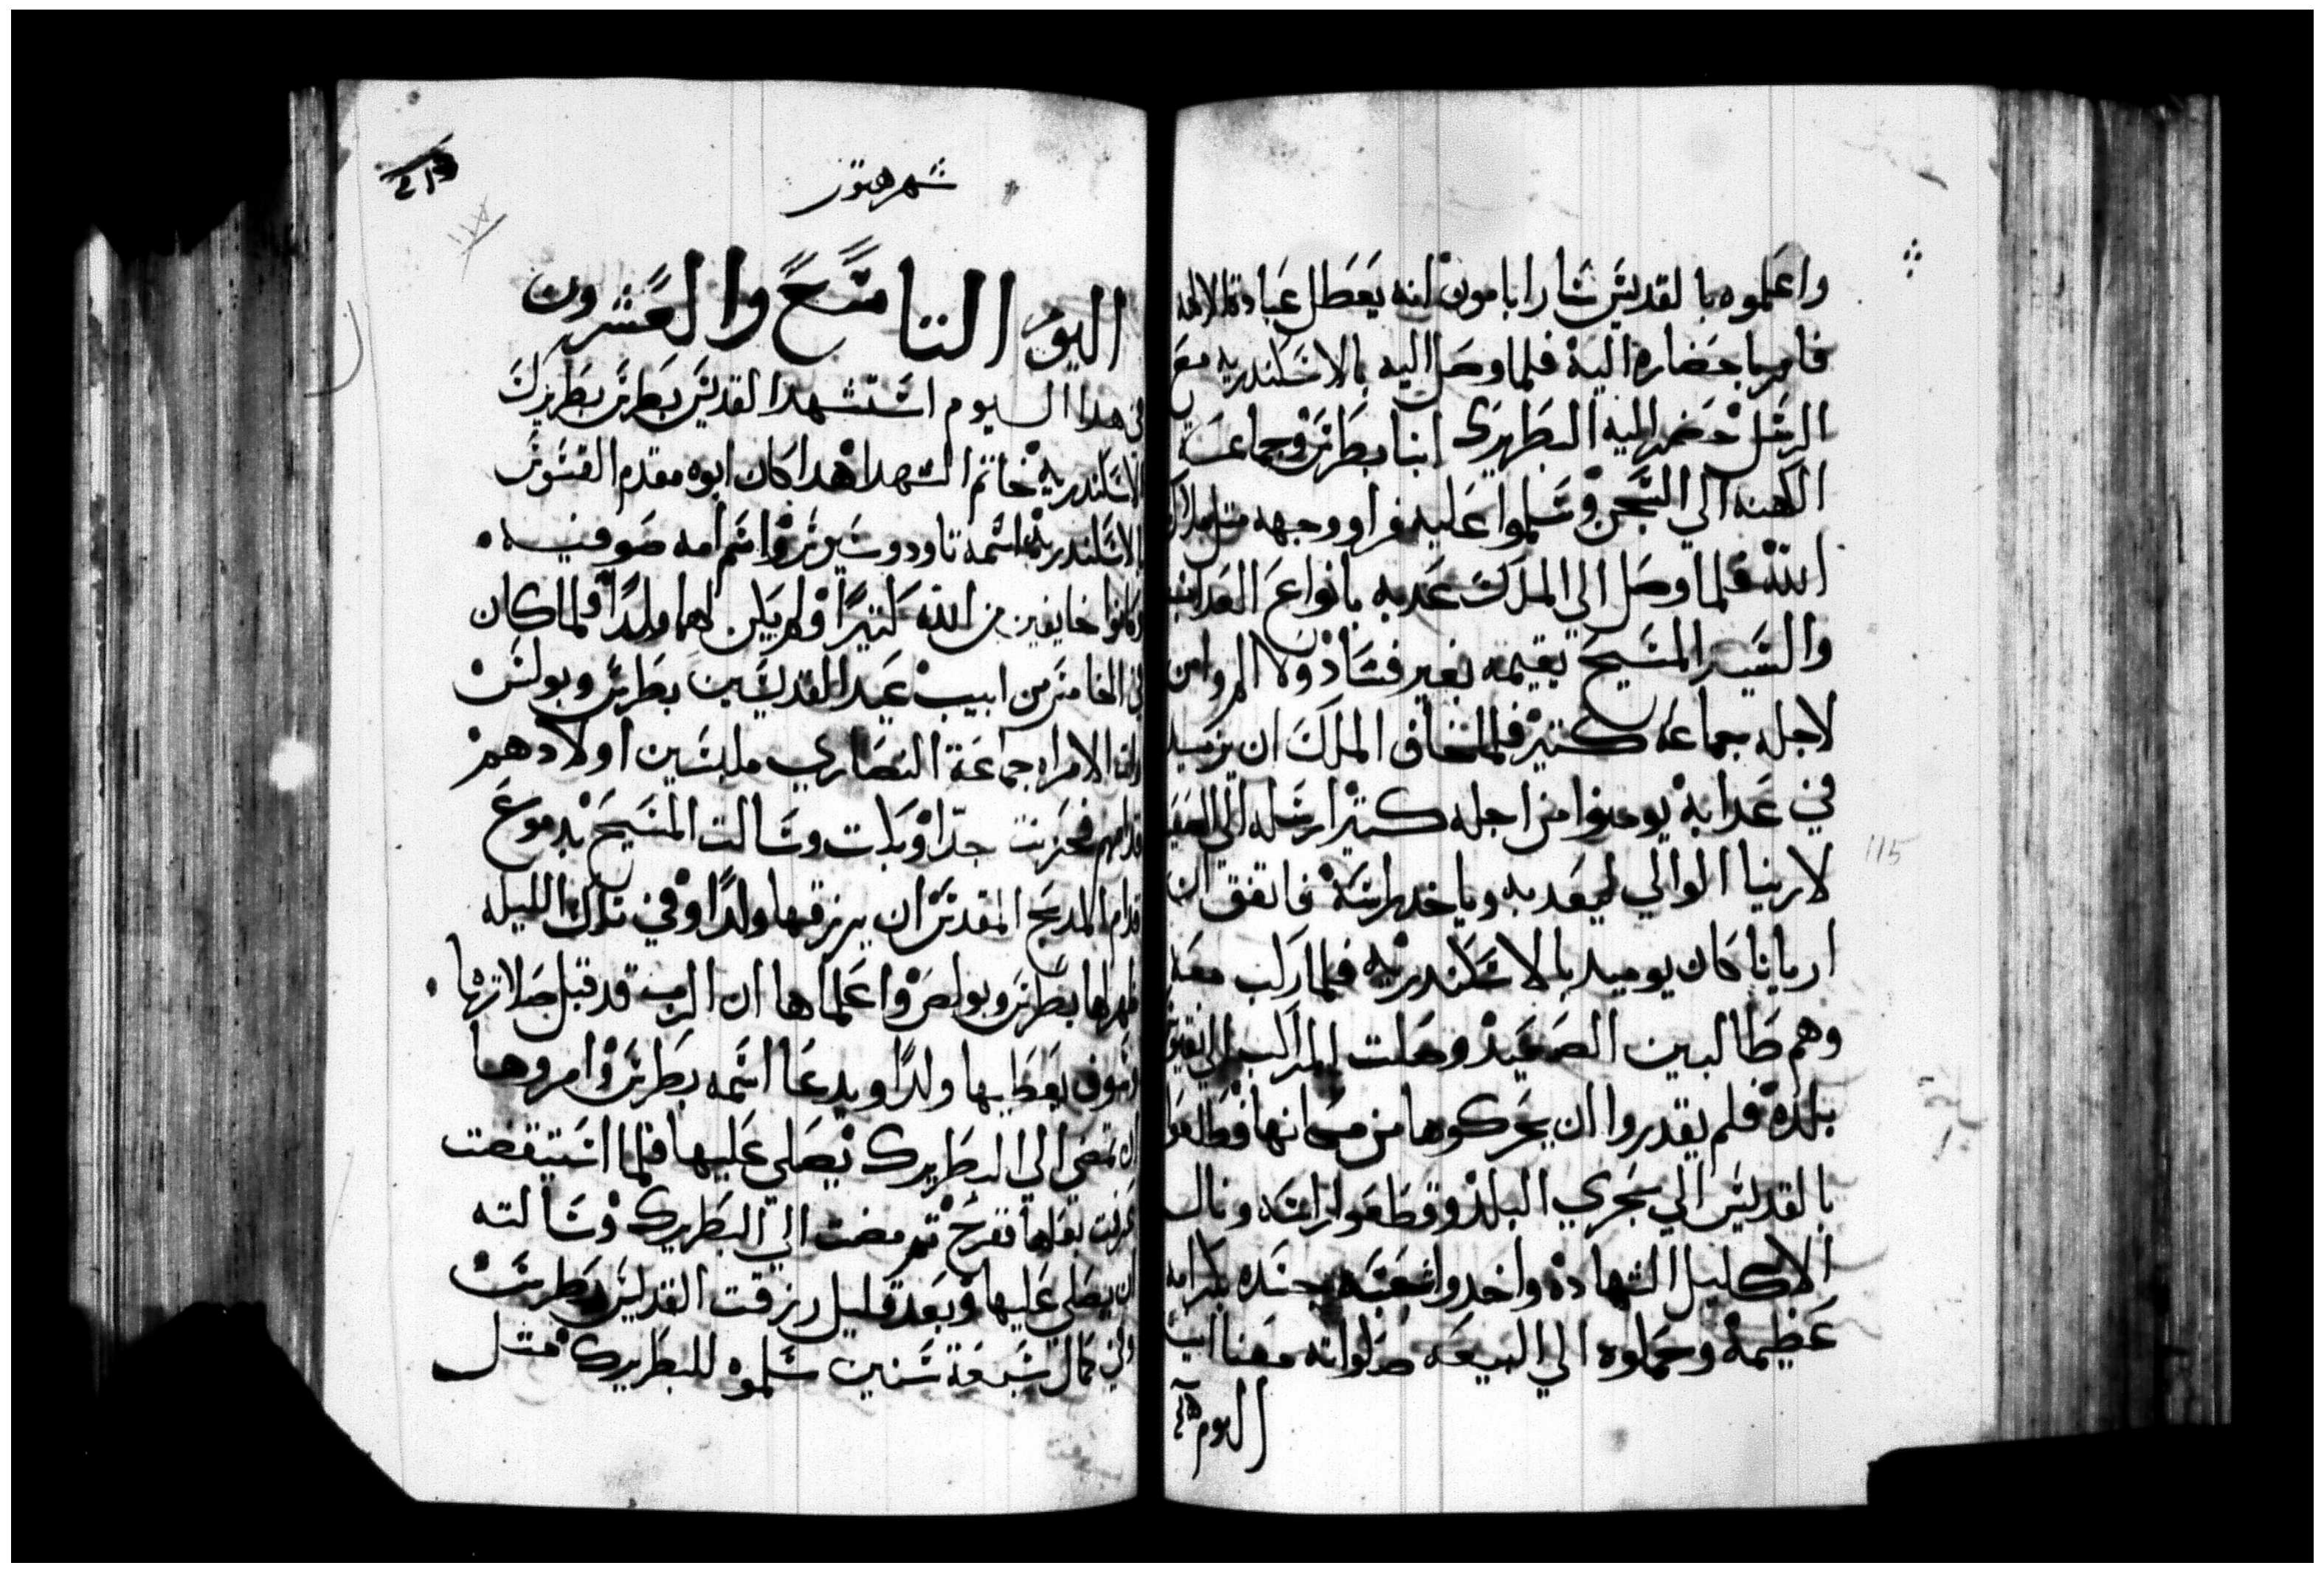 واعلموه بالقديس سارابامون انه يعطل عبادة الالهه
فامر باحضاره اليه فلما وصل اليه بالاسكندريه مع
الرسل حضر اليه البطريرك انبا بطرس وجماعة
الكهنه الي السجن وسلموا عليه فراو وجهه متل ملاك
الله فلما وصل الي الملك عدبه بانواع العداب
والسيد المسيح يقيمه بغير فساد ولا الم وامن
لاجله جماعه كتير فلما خاف الملك ان يزيد
في عدابه يومنوا من اجله كتير ارسله الي الصعيد
لاريانا الوالي ليعدبه وياخد راسه فاتفق ان
اريانا كان يوميد بالاسكندريه فلما ركب معه
وهم طالبين الصعيد وصلت المراكب الي نقيوس
بلده فلم يقدروا ان يحركوها من مكانها فطلعوا
بالقديس الي بحري البلد وقطعوا راسه ونال
الاكليل الشهاده واخدوا شعبه جسده بكرامه
عظيمه وحملوه الي البيعه صلواته معنا امين
اليوم
شهر هتور
اليوم التاسع والعشرون
في هدا اليوم استشهد القديس بطرس بطريرك
الاسكندريه خاتم الشهدا هدا كان ابوه مقدم القسوس
بالاسكندريه اسمه تاودوسيوس واسم امه صوفيه
وكانوا خايفين من الله كتيرا ولم يكن لهما ولدا فلما كان
في الخامس من ابيب عيد القديسين بطرس وبولس
رات الامراه جماعة النصاري ملبسين اولادهم
قدامهم فحزنت جدا وبكت وسالت المسيح بدموع
قدام المدبح المقدس ان يرزقها ولدا وفي تلك الليله
ظهرا لها بطرس وبولص واعلماها ان الرب قد قبل صلاتها
وسوف يعطيها ولدا ويدعا اسمه بطرس وامروها
ان تمضي الي البطريرك يصلي عليها فلما استيقضت
عرفت بعلها ففرح تم مضت الي البطريرك وسالته
ان يصلي عليها وبعد قليل رزقت القديس بطرس
وفي كمال سبعة سنين سلموه للبطريرك متل
115